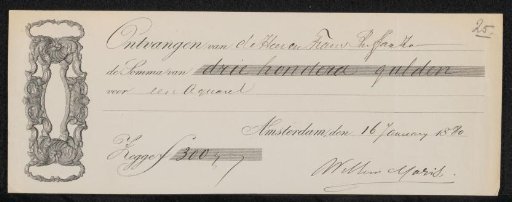 25.
Ontvangen van de Heer en Frans Buffa &
de Somma van drie honderd gulden
voor een Aquarel
Amsterdam, den 16 January 1880
Zegge ƒ 300,,
Willem Maris